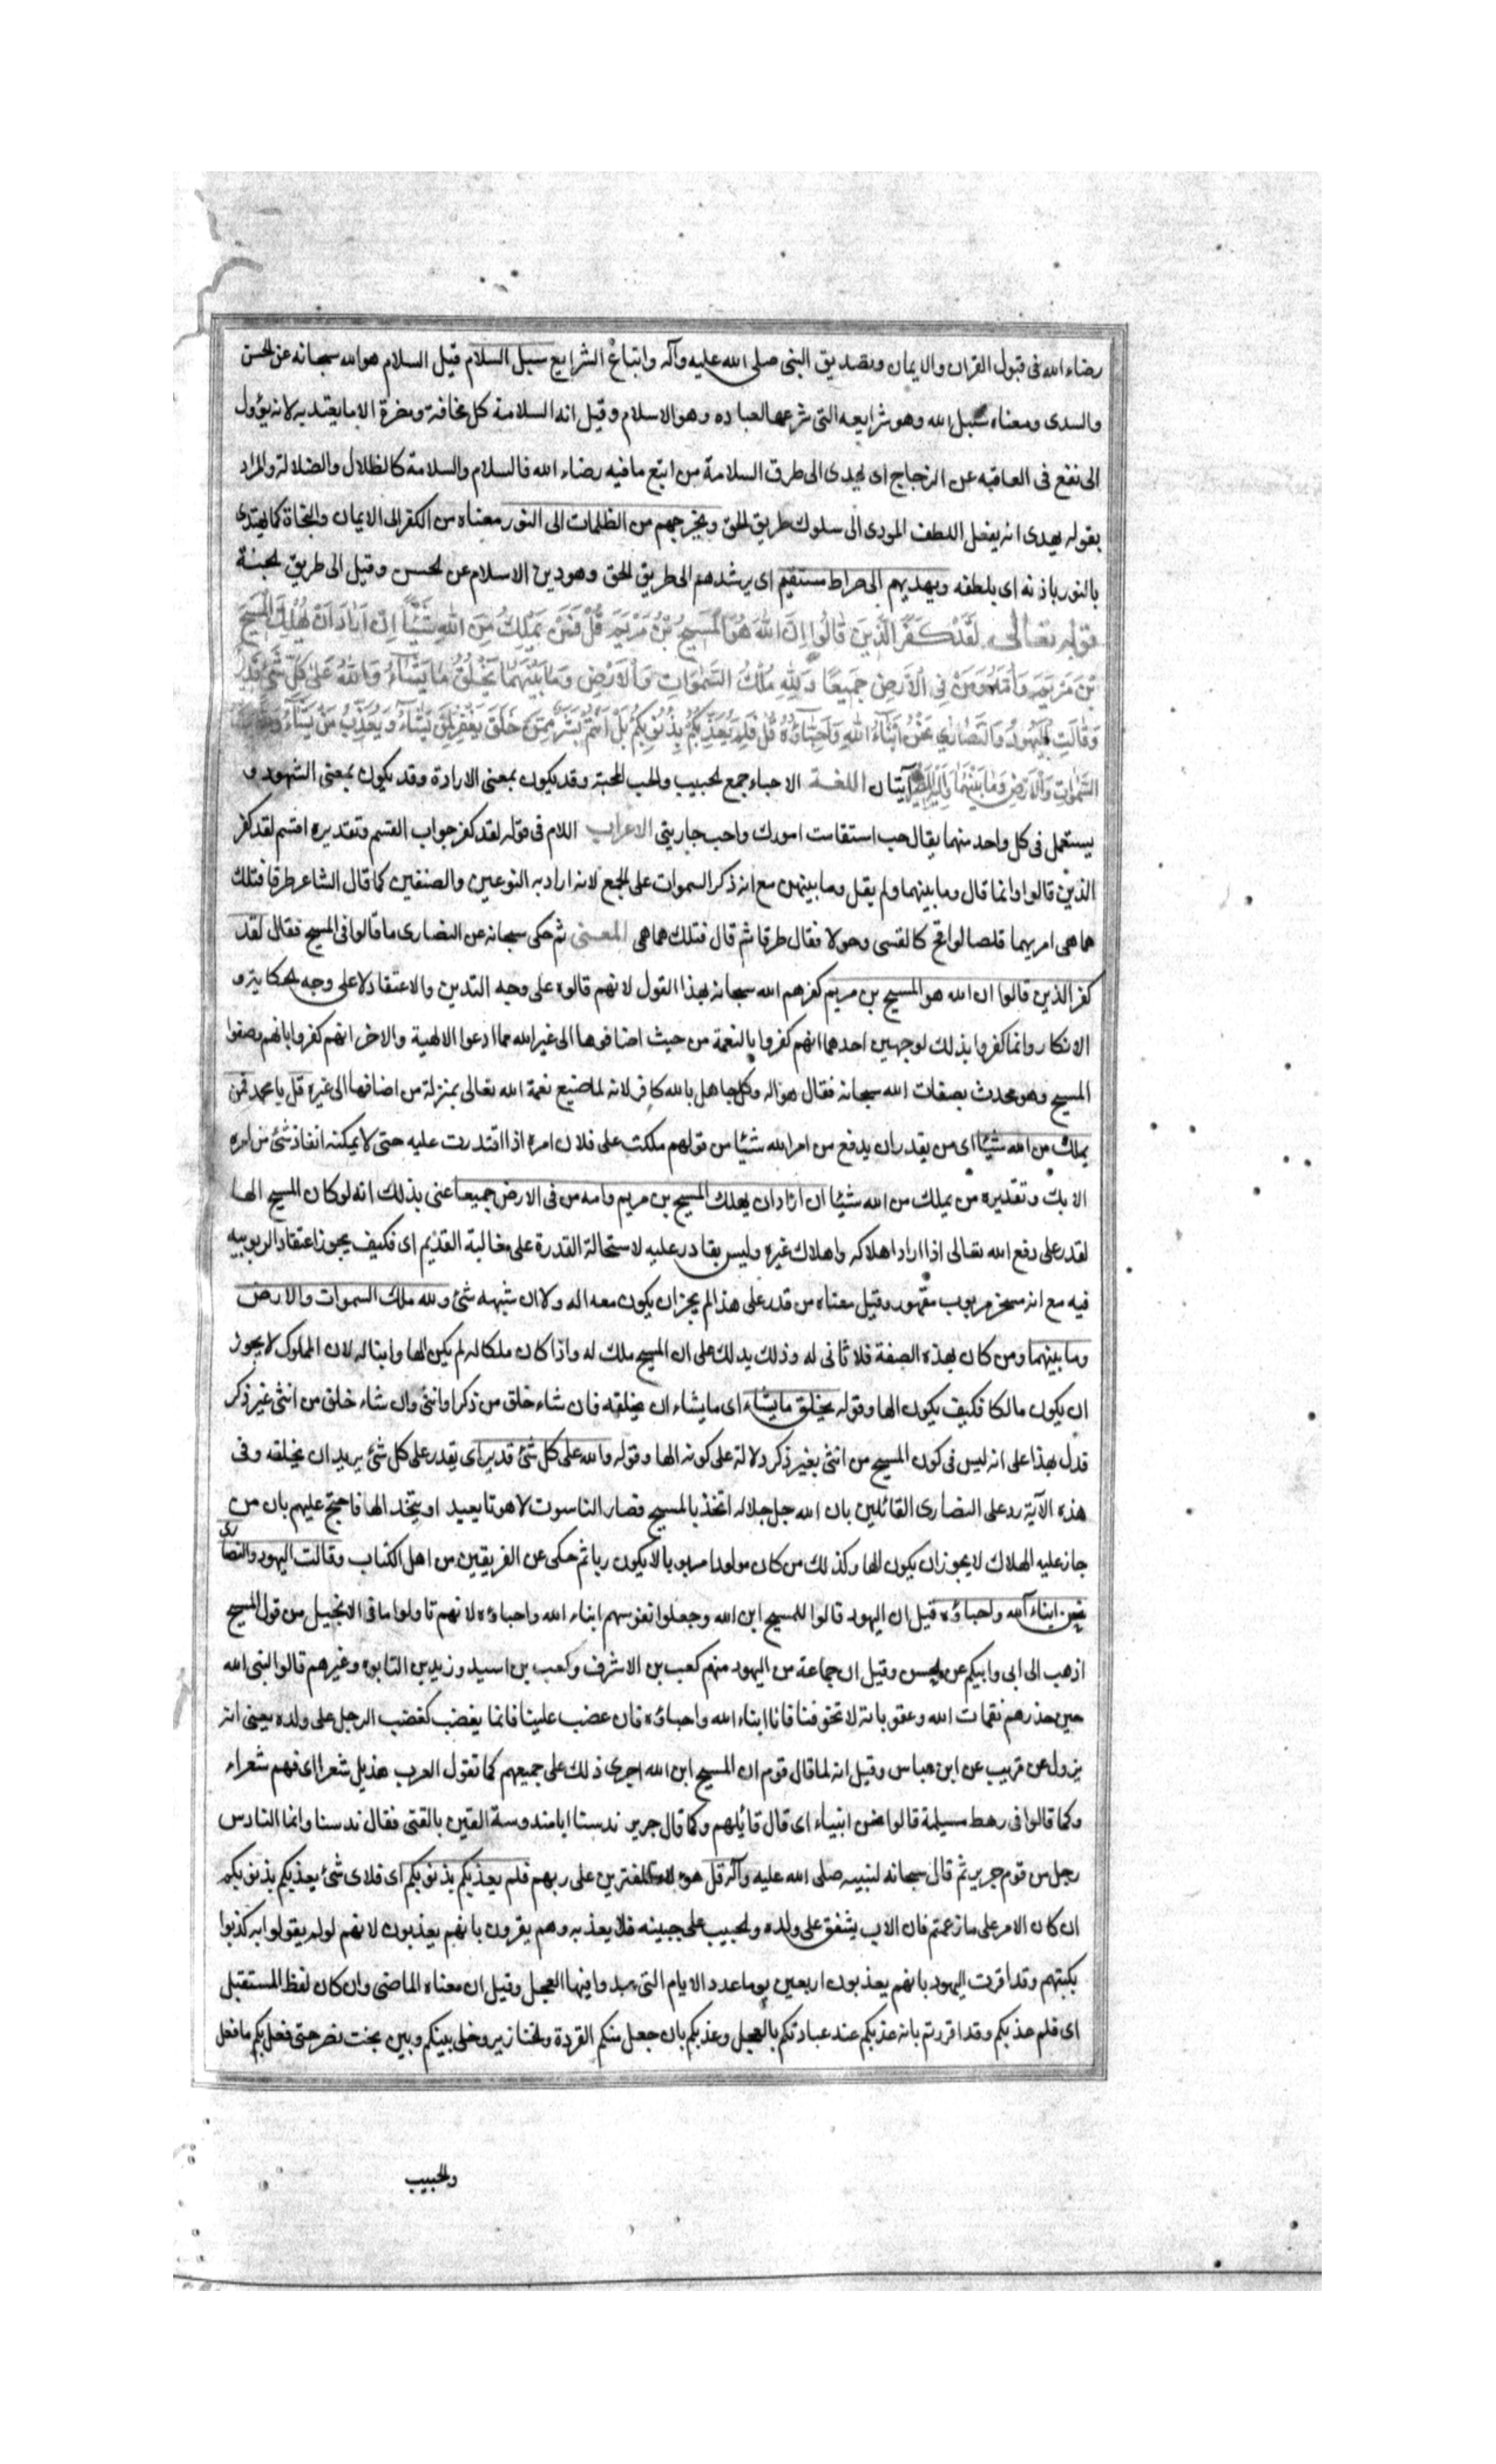 رضاء الله فى قبول القران والايمان وتصديق النبى صلى الله عليه وآله واتباع الشرايع سبل السلام قيل السلام هو الله سبحانه عن الحسن
والسدى ومعناه سبل الله وهو شرايعه التى شرعها لعباده وهو الاسلام وقيل انه السلامة كل مخافة ومضرة الا ما يعتد به لانه يؤول
الى نفع فى العاقبه عن الزجاج اى يهدى الى طرق السلامة من اتبع ما فيه رضاء الله فالسلام والسلامة كالظلال والضلالة والمراد
بقوله يهدى انه يفعل اللطف المودى الى سلوك طريق الحق ويخرجهم من الظلمات الى النور معناه من الكفر الى الايمان والنجاة كما يهتدى
بالنور باذنه اى بلطفه ويهديهم الى صراط مستقيم اى يرشدهم الى طريق الحق وهو دين الاسلام عن الحسن وقيل الى طريق الجنة
قوله تعالى لَقَدْ كَفَرَ الَّذِينَ قَالُوا اِنَّ اللّٰهَ هُوَ الْمَسِيحُ بْنُ مَرْيَمَ قُلْ فَمَنْ يَمْلِكُ مِنَ اللّٰهِ شَيْئًا اِنْ اَرَادَ اَنْ يُهْلِكَ الْمَسِيحَ
بْنَ مَرْيَمَ وَاُمَّهُ وَمَنْ فِى الْاَرْضِ جَمِيعًا وَلِلّٰهِ مُلْكُ السَّمٰوَاتِ وَالْاَرْضِ وَمَا بَيْنَهُمَا يَخْلُقُ مَا يَشَاءُ وَاللّٰهُ عَلٰى كُلِّ شَىْءٍ قَدِيرٌ
وَقَالَتِ الْيَهُودُ وَالنَّصَارٰى نَحْنُ اَبْنَاءُ اللّٰهِ وَاَحِبَّاؤُهُ قُلْ فَلِمَ يُعَذِّبُكُمْ بِذُنُوبِكُمْ بَلْ اَنْتُمْ بَشَرٌ مِمَّنْ خَلَقَ يَغْفِرُ لِمَنْ يَشَاءُ وَيُعَذِّبُ مَنْ يَشَاءُ
السَّمٰوَاتِ وَالْاَرْضِ وَمَا بَيْنَهُمَا وَاِلَيْهِ الْمَصِيرُ آيتان اللغة الاحباء جمع الحبيب والحب المحبة وقد يكون بمعنى الارادة وقد يكون بمعنى الشهود و
يستعمل فى كل واحد منهما يقال حب استقامت امورك واحب جاريتى الاعراب اللام فى قوله لقد كفر جواب القسم وتقديره اقسم لقد كفر
الذين قالوا وانما قال وما بينهما ولم يقل وما بينهن مع انه ذكر السموات على الجمع لانه اراد به النوعين والصنفين كما قال الشاعر طرقا فتلك
هماهمى اقريهما قلصا لواقح كالقسى وحولا فقال طرقا ثم قال فتلك هماهمى المعنى ثم حكى سبحانه عن النصارى ما قالوا فى المسيح فقال لقد
كفر الذين قالوا ان الله هو المسيح بن مريم كفرهم الله سبحانه بهذا القول لانهم قالوه على وجه التدين والاعتقاد لا على وجه الحكاية و
الانكار وانما كفروا بذلك لوجهين احدهما انهم كفروا بالنعمة من حيث اضافوها الى غير الله مما ادعوا الالهية والاخر انهم كفروا بانهم وصفوا
المسيح وهو محدث بصفات الله سبحانه فقال هو اله وكل جاهل بالله كافر لانه لما ضيع نعمة الله تعالى بمنزلة من اضافها الى غيره قل يا محمد فمن
يملك من الله شيئا اى من يقدر ان يدفع من امر الله شيئا من قولهم ملكت على فلان امره اذا اقتدرت عليه حتى لا يمكنه انفاذ شئ من امره
الا بك وتقديره من يملك من الله شيئا ان اراد ان يهلك المسيح بن مريم وامه من فى الارض جميعا عنى بذلك انه لو كان المسيح الها
لقدر على دفع الله تعالى اذا اراد اهلاكه واهلاك غيره وليس بقادر عليه لاستحالة القدرة على مغالبة القديم اى فكيف يجوز اعتقاد الربوبيه
فيه مع انه مسخر مربوب مقهور وقيل معناه من قدر على هذا لم يجز ان يكون معه اله ولا ان يشبهه شئ ولله ملك السموات والارض
وما بينهما ومن كان بهذه الصفة فلا ثانى له وذلك يدلك على ان المسيح ملك له واذا كان ملكا له لم يكن الها وابنا له لان المملوك لا يجوز
ان يكون مالكا فكيف يكون الها وقوله يخلق ما يشاء اى ما يشاء ان يخلقه فان شاء خلق من ذكر وانثى وان شاء خلق من انثى غير ذكر
فدل بهذا على انه ليس فى كون المسيح من انثى بغير ذكر دلالة على كونه الها وقوله والله على كل شئ قدير اى يقدر على كل شئ يريد ان يخلقه وفى
هذه الآية رد على النصارى القائلين بان الله جل جلاله اتخذ بالمسيح فصار الناسوت لاهوتا يعبد او يتخذ الها فاحتج عليهم بان من
جاز عليه الهلاك لا يجوز ان يكون الها وكذلك من كان مولودا مربوبا لا يكون ربا ثم حكى عن الفريقين من اهل الكتاب وقالت اليهود والنصارى
نحن ابناء الله واحباؤه قيل ان اليهود قالوا للمسيح ابن الله وجعلوا نفوسهم ابناء الله واحباؤه لانهم تاولوا ما فى الانجيل من قول المسيح
اذهب الى ابى وابيكم عن الحسن وقيل ان جماعة من اليهود منهم كعب بن الاشرف وكعب بن اسيد وزيد بن التابوه وغيرهم قالوا لنبى الله
حين حذرهم نقمات الله وعقوباته لا تخوفنا فانا ابناء الله واحباؤه فان غضب علينا فانما يغضب كغضب الرجل على ولده يعنى انه
يزول عن قريب عن ابن عباس وقيل انه لما قال قوم ان المسيح ابن الله اجرى ذلك على جميعهم كما تقول العرب هذيل شعرا اى فيهم شعراء
وكما قالوا فى رهط مسيلمة قالوا نحن انبياء اى قال قائلهم وكما قال جرير ندسنا ابا مندوسة القين بالقنى فقال ندسنا وانما النادس
رجل من قوم جرير ثم قال سبحانه لنبيه صلى الله عليه وآله قل هولاء المفترين على ربهم فلم يعذبكم بذنوبكم اى فلاى شئ يعذبكم بذنوبكم
ان كان الامر على ما زعمتم فان الاب يشفق على ولده والحبيب على حبيبه فلا يعذبه وهم يقرون بانهم يعذبون لانهم لو لم يقولوا به كذبوا
بكتبهم وقد اقرت اليهود بانهم يعذبون اربعين يوما عدد الايام التى عبدوا فيها العجل وقيل ان معناه الماضى وان كان لفظ المستقبل
اى فلم عذبكم وقد اقررتم بانه عذبكم عند عبادتكم بالعجل وعذبكم بان جعل منكم القردة والخنازير وخلى بينكم وبين بخت نصر حتى فعل بكم ما فعل
والحبيب